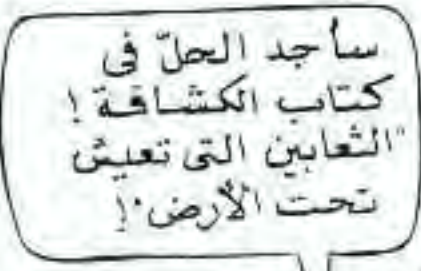 سأجد الحلّ فى
كتاب الكشافة !
"الثعابين التى تعيش
تحت الأرض" !